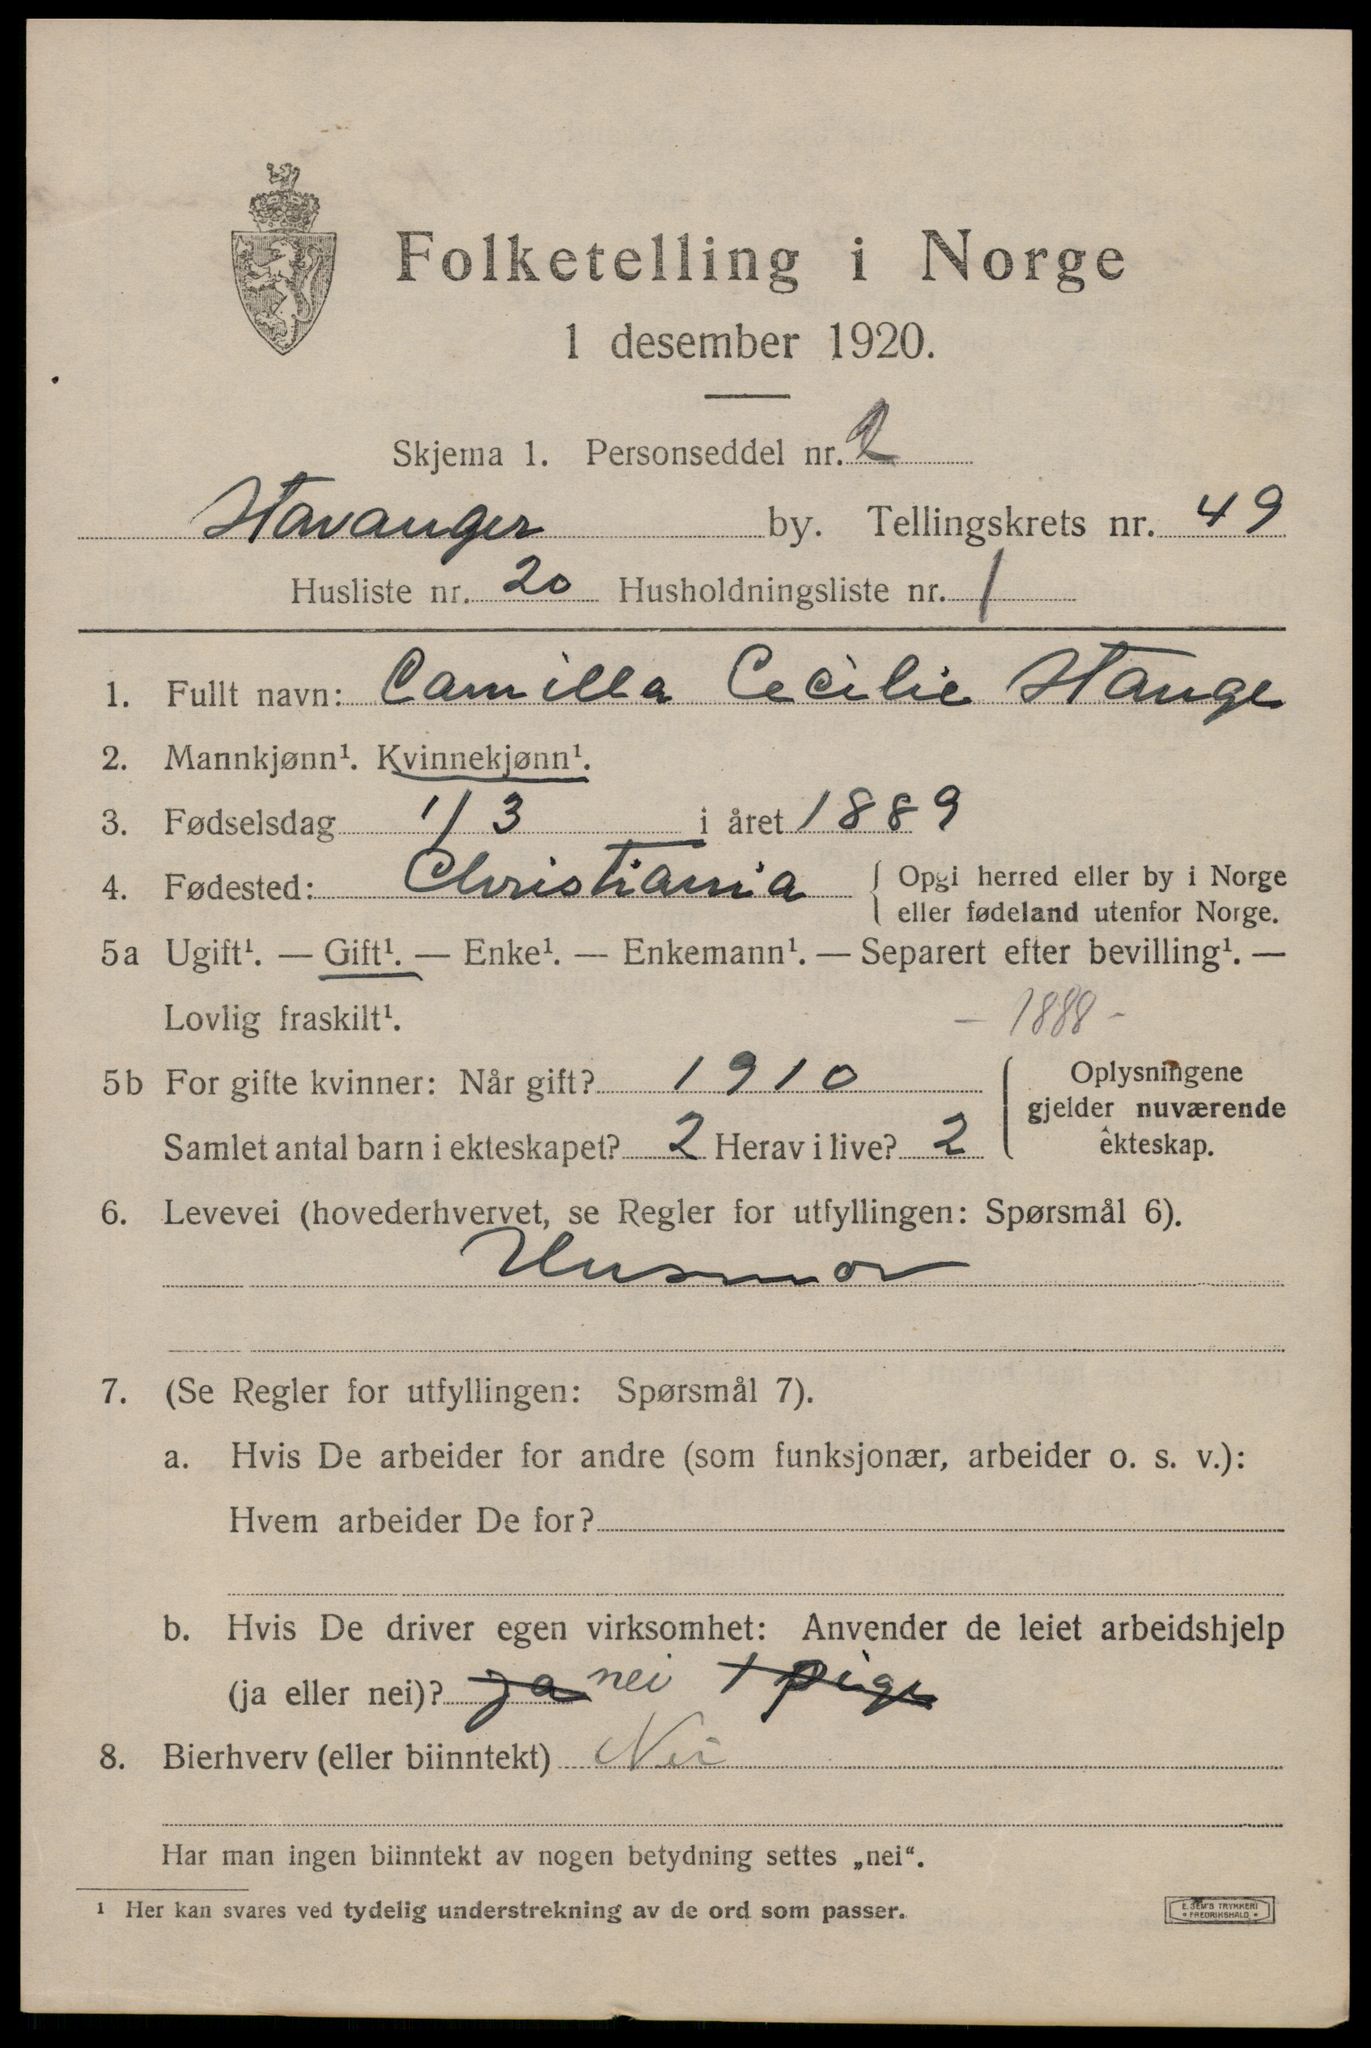 Folketelling i Norge
1 desember 1920.
Skjema 1. Personseddel nr. 2
Stavanger by. Tellingskrets nr. 49
Husliste nr. 20 Husholdningsliste nr. 1
1. Fullt navn: Camilla Cecilie Stange
2. Mannkjønn¹. Kvinnekjønn¹.
3. Fødselsdag 1/3 i året 1889
4. Fødested: Christiania { Opgi herred eller by i Norge
eller fødeland utenfor Norge.
5a Ugift¹. — Gift¹. — Enke¹. — Enkemann¹. — Separert efter bevilling¹. —
Lovlig fraskilt¹. - 1888 -
5b For gifte kvinner: Når gift? 1910 { Oplysningene
gjelder nuværende
Samlet antal barn i ekteskapet? 2 Herav i live? 2 ekteskap.
6. Levevei (hovederhvervet, se Regler for utfyllingen: Spørsmål 6).
Husmor
7. (Se Regler for utfyllingen: Spørsmål 7).
a. Hvis De arbeider for andre (som funksjonær, arbeider o. s. v.):
Hvem arbeider De for?
b. Hvis De driver egen virksomhet: Anvender de leiet arbeidshjelp
(ja eller nei)? ja nei 1 pige
8. Bierhverv (eller biinntekt) Nei
Har man ingen biinntekt av nogen betydning settes „nei“.
¹ Her kan svares ved tydelig understrekning av de ord som passer.
E. SEM'S TRYKKERI
• FREDRIKSHALD •